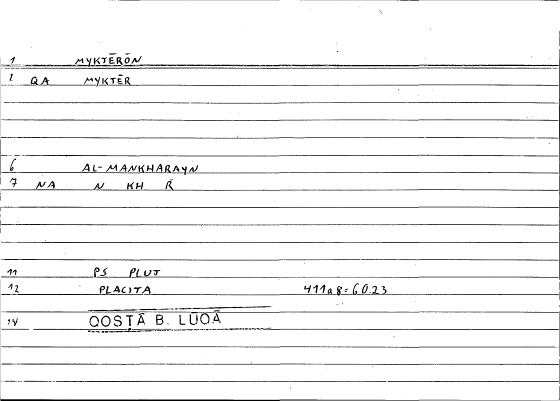 1 MYKTĒRŌN
1 QA MYKTĒR
6 AL-MANKHARAYN
7 NA N KH R̄
11 PS PLUT
12 PLACITA 411a8=60.23
14 QOSṬĀ B. LŪQĀ